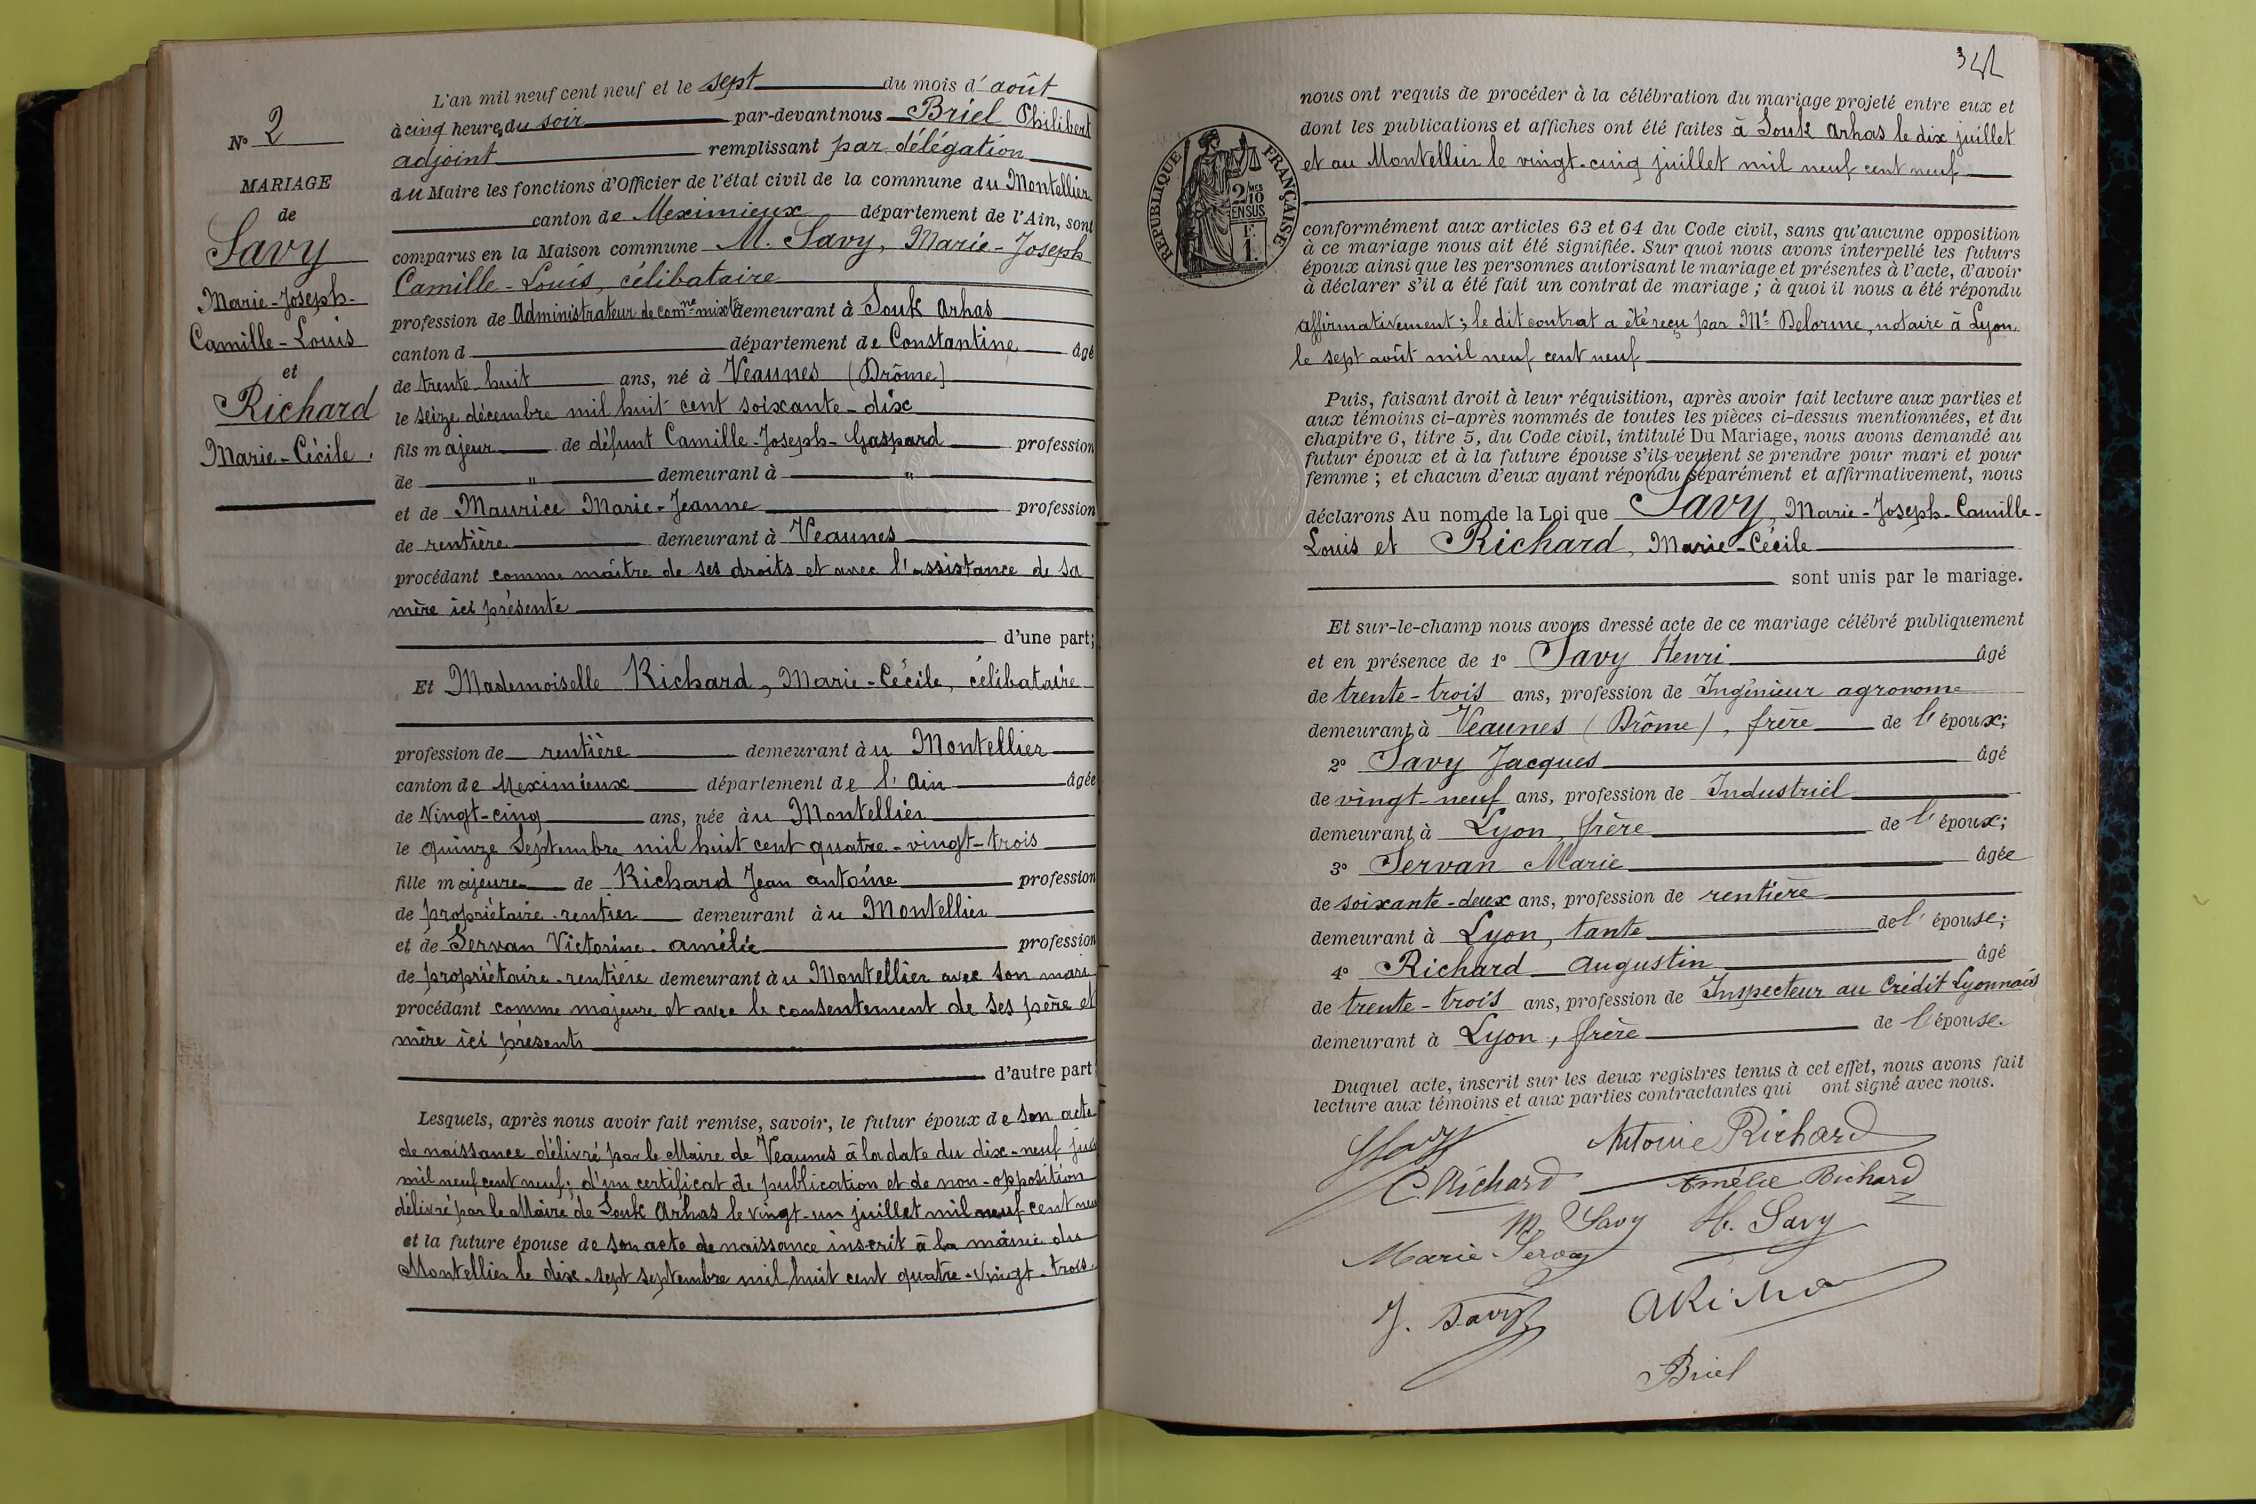 N° 2
MARIAGE
de
Savy
Marie-Joseph-
Camille-Louis
et
Richard
Marie-Cécile.
L'an mil neuf cent neuf et le sept du mois d'août
à cinq heures du soir par-devant nous Briel Philibert
adjoint remplissant par délégation
du Maire les fonctions d'Officier de l'état civil de la commune du Montellier
canton de Meximieux département de l'Ain, sont
comparus en la Maison commune M. Savy, Marie-Joseph
Camille-Louis, célibataire
profession de Administrateur de comne mixte demeurant à Souk Arhas
canton d département de Constantine âgé
de trente huit ans, né à Veaunes (Drôme)
le seize décembre mil huit cent soixante-dix
fils majeur de défunt Camille-Joseph-Gaspard profession
de " demeurant à "
et de Maurice Marie-Jeanne profession
de rentière demeurant à Veaunes
procédant comme maître de ses droits et avec l'assistance de sa
mère ici présente
d'une part;
Et Mademoiselle Richard, Marie-Cécile, célibataire
profession de rentière demeurant àu Montellier
canton de Meximieux département de l'Ain âgée
de Vingt-cinq ans, née àu Montellier
le quinze Septembre mil huit cent quatre-vingt-trois
fille majeure de Richard Jean antoine profession
de propriétaire-rentier demeurant àu Montellier
et de Servan Victorine-amélie profession
de propriétaire-rentière demeurant àu Montellier avec son mari
procédant comme majeure et avec le consentement de ses père et
mère ici présents
d'autre part
Lesquels, après nous avoir fait remise, savoir, le futur époux de son acte
de naissance délivré par le Maire de Veaunes à la date du dix-neuf
mil neuf cent neuf; d'un certificat de publication et de non-opposition
délivré par le Maire de Souk Arhas le vingt-un juillet mil neuf cent neuf
et la future épouse de son acte de naissance inscrit à la mairie du
Montellier le dix-sept septembre mil huit cent quatre-vingt-trois.
342
RÉPUBLIQUE FRANÇAISE
2/10 MES
EN SUS
1 F.
nous ont requis de procéder à la célébration du mariage projeté entre eux et
dont les publications et affiches ont été faites à Souk Arhas le dix juillet
et au Montellier le vingt-cinq juillet mil neuf cent neuf
conformément aux articles 63 et 64 du Code civil, sans qu'aucune opposition
à ce mariage nous ait été signifiée. Sur quoi nous avons interpellé les futurs
époux ainsi que les personnes autorisant le mariage et présentes à l'acte, d'avoir
à déclarer s'il a été fait un contrat de mariage ; à quoi il nous a été répondu
affirmativement; le dit contrat a été reçu par Me Delorme, notaire à Lyon.
le sept août mil neuf cent neuf
Puis, faisant droit à leur réquisition, après avoir fait lecture aux parties et
aux témoins ci-après nommés de toutes les pièces ci-dessus mentionnées, et du
chapitre 6, titre 5, du Code civil, intitulé Du Mariage, nous avons demandé au
futur époux et à la future épouse s'ils veulent se prendre pour mari et pour
femme ; et chacun d'eux ayant répondu séparément et affirmativement, nous
déclarons Au nom de la Loi que Savy, Marie-Joseph-Camille-
Louis et Richard, Marie-Cécile
sont unis par le mariage.
Et sur-le-champ nous avons dressé acte de ce mariage célébré publiquement
et en présence de 1° Savy Henri âgé
de trente-trois ans, profession de Ingénieur agronome
demeurant à Veaunes (Drôme), frère de l'époux;
2° Savy Jacques âgé
de vingt-neuf ans, profession de Industriel
demeurant à Lyon, frère de l'époux;
3° Servan Marie âgée
de soixante-deux ans, profession de rentière
demeurant à Lyon, tante de l'épouse;
4° Richard augustin âgé
de trente-trois ans, profession de Inspecteur au Crédit Lyonnais
demeurant à Lyon, frère de l'épouse.
Duquel acte, inscrit sur les deux registres tenus à cet effet, nous avons fait
lecture aux témoins et aux parties contractantes qui ont signé avec nous.
Savy Antoine Richard
C. Richard Amélie Richard
M. Savy H. Savy
Marie Servan
J. Savy
Briel